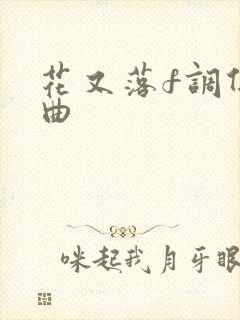 花又落f調
曲
咪起我月牙眼